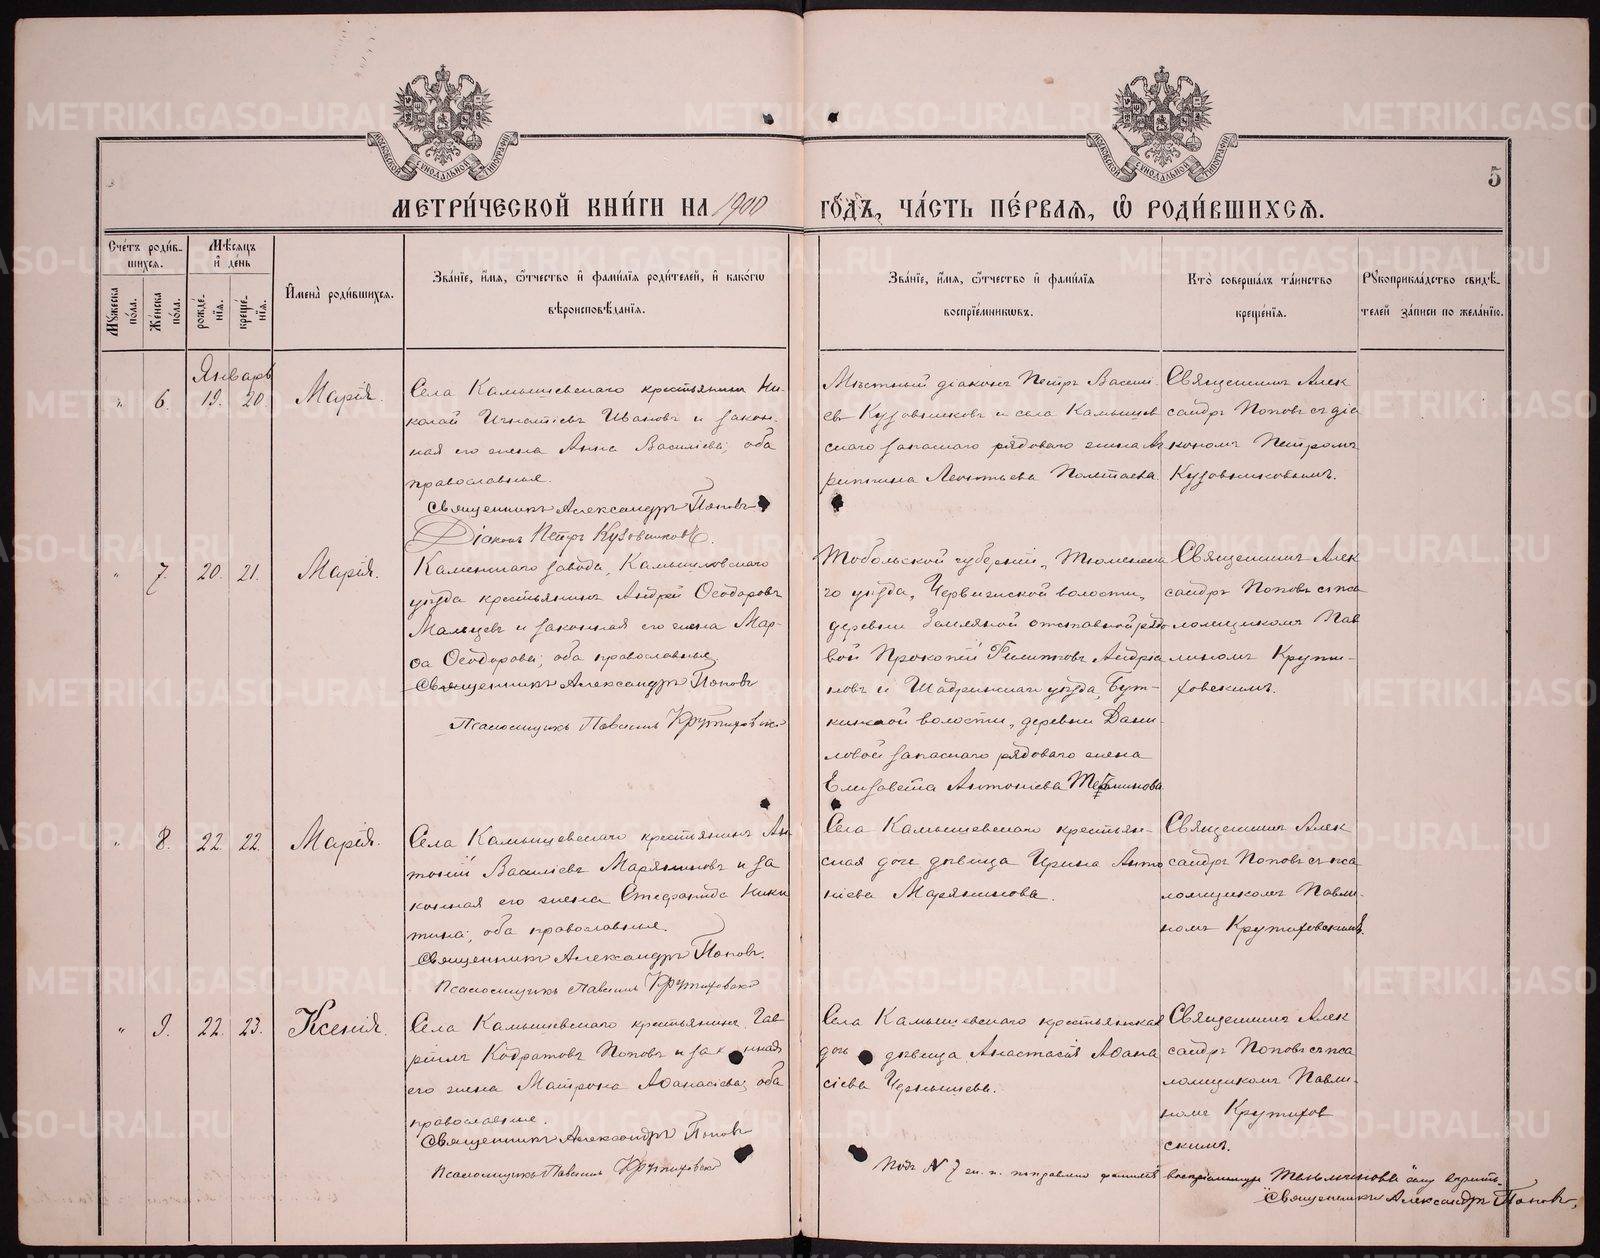 МЕТРИЧЕСКОЙ КНИГИ НА 1900 ГОДЪ, ЧАСТЬ ПЕРВАЯ, Ѡ РОДИВШИХСЯ.
5
Счетъ родив-
шихся.
Мужеска
пола.
Женска
пола.
Мѣсяцъ
и день
рожде-
нія.
креще-
нія.
Имена родившихся.
Званіе, имя, ѿчество и фамилія родителей, и какогѡ
вѣроисповѣданія.
Званіе, имя, ѿчество и фамилія
воспріемникѡвъ.
Кто совершалъ таинство
крещенія.
Рукоприкладство свидѣ-
телей записи по желанію.
Январь
" 6. 19. 20 Марія.
Села Камышевскаго крестьянинъ Ни-
колай Игнатіевъ Ивановъ и закон-
ная его жена Анна Василіева; оба
православные.
Священникъ Александръ Поповъ
Діаконъ Петръ Кузовниковъ.
Мѣстный діаконъ Петръ Василі-
евъ Кузовниковъ и села Камышев-
скаго запаснаго рядоваго жена
Леонтьева Полтаева.
Священникъ Алек
сандръ Поповъ съ діа
кономъ Петромъ
Кузовниковымъ.
" 7. 20. 21. Марія.
Каменскаго завода, Камышловскаго
уѣзда крестьянинъ Андрей Ѳеодоровъ
Мальцевъ и законная его жена Мар-
ѳа Ѳеодорова; оба православные.
Священникъ Александръ Поповъ
Псаломщикъ Павлинъ Крутиховскій
Тобольской губерніи, Тюменска
го уѣзда, Червишской волости,
деревни отставной рядо
вой Прокопій Филипповъ Андріа
новъ и Шадринскаго уѣзда, Бут-
кинской волости, деревни Дани-
ловой запаснаго рядоваго жена
Елизавета Антоніева
Священникъ Алек
сандръ Поповъ съ пса
ломщикомъ Пав
линомъ Крути-
ховскимъ.
" 8. 22. 22. Марія.
Села Камышевскаго крестьянинъ Ан-
тоній Василіевъ Маряниновъ и за
конная его жена Стефанида Ники
тина; оба православные.
Священникъ Александръ Поповъ.
Псаломщикъ Павлинъ Крутиховскій
Села Камышевскаго крестьян-
ская дочь дѣвица Ирина Анто
ніева Марянинова.
Священникъ Алек
сандръ Поповъ съ пса
ломщикомъ Павли-
номъ Крутиховскимъ.
" 9. 22. 23. Ксенія.
Села Камышевскаго крестьянинъ Гав
ріилъ Кодратовъ Поповъ и зак нная
его жена Матрона Аѳанасіева; оба
православные.
Священникъ Александръ Поповъ
Псаломщикъ Павлинъ Крутиховскій
Села Камышевскаго крестьянская
дочь дѣвица Анастасія Аѳана
сіева Чернышева.
Священникъ Алек
сандръ Поповъ съ пса
ломщикомъ Павли-
номъ Крутихов
скимъ.
Подъ № 7 ж. п. поправлено фамилія воспріемницы Тельминова сему вѣрить.
Священникъ Александръ Поповъ.
METRIKI.GASO-URAL.RU